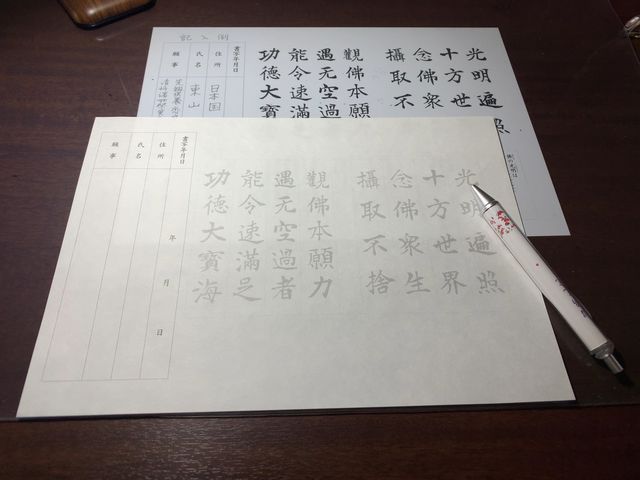 記入例
光明遍照
十方世
念佛衆
攝取不
觀佛本願
遇无空過
能令速滿
功德大寶
書写年月日
住所 日本国
氏名 東山
願事
光明遍照
十方世界
念佛衆生
攝取不捨
觀佛本願力
遇无空過者
能令速滿足
功德大寶海
書写年月日
年 月 日
住所
氏名
願事